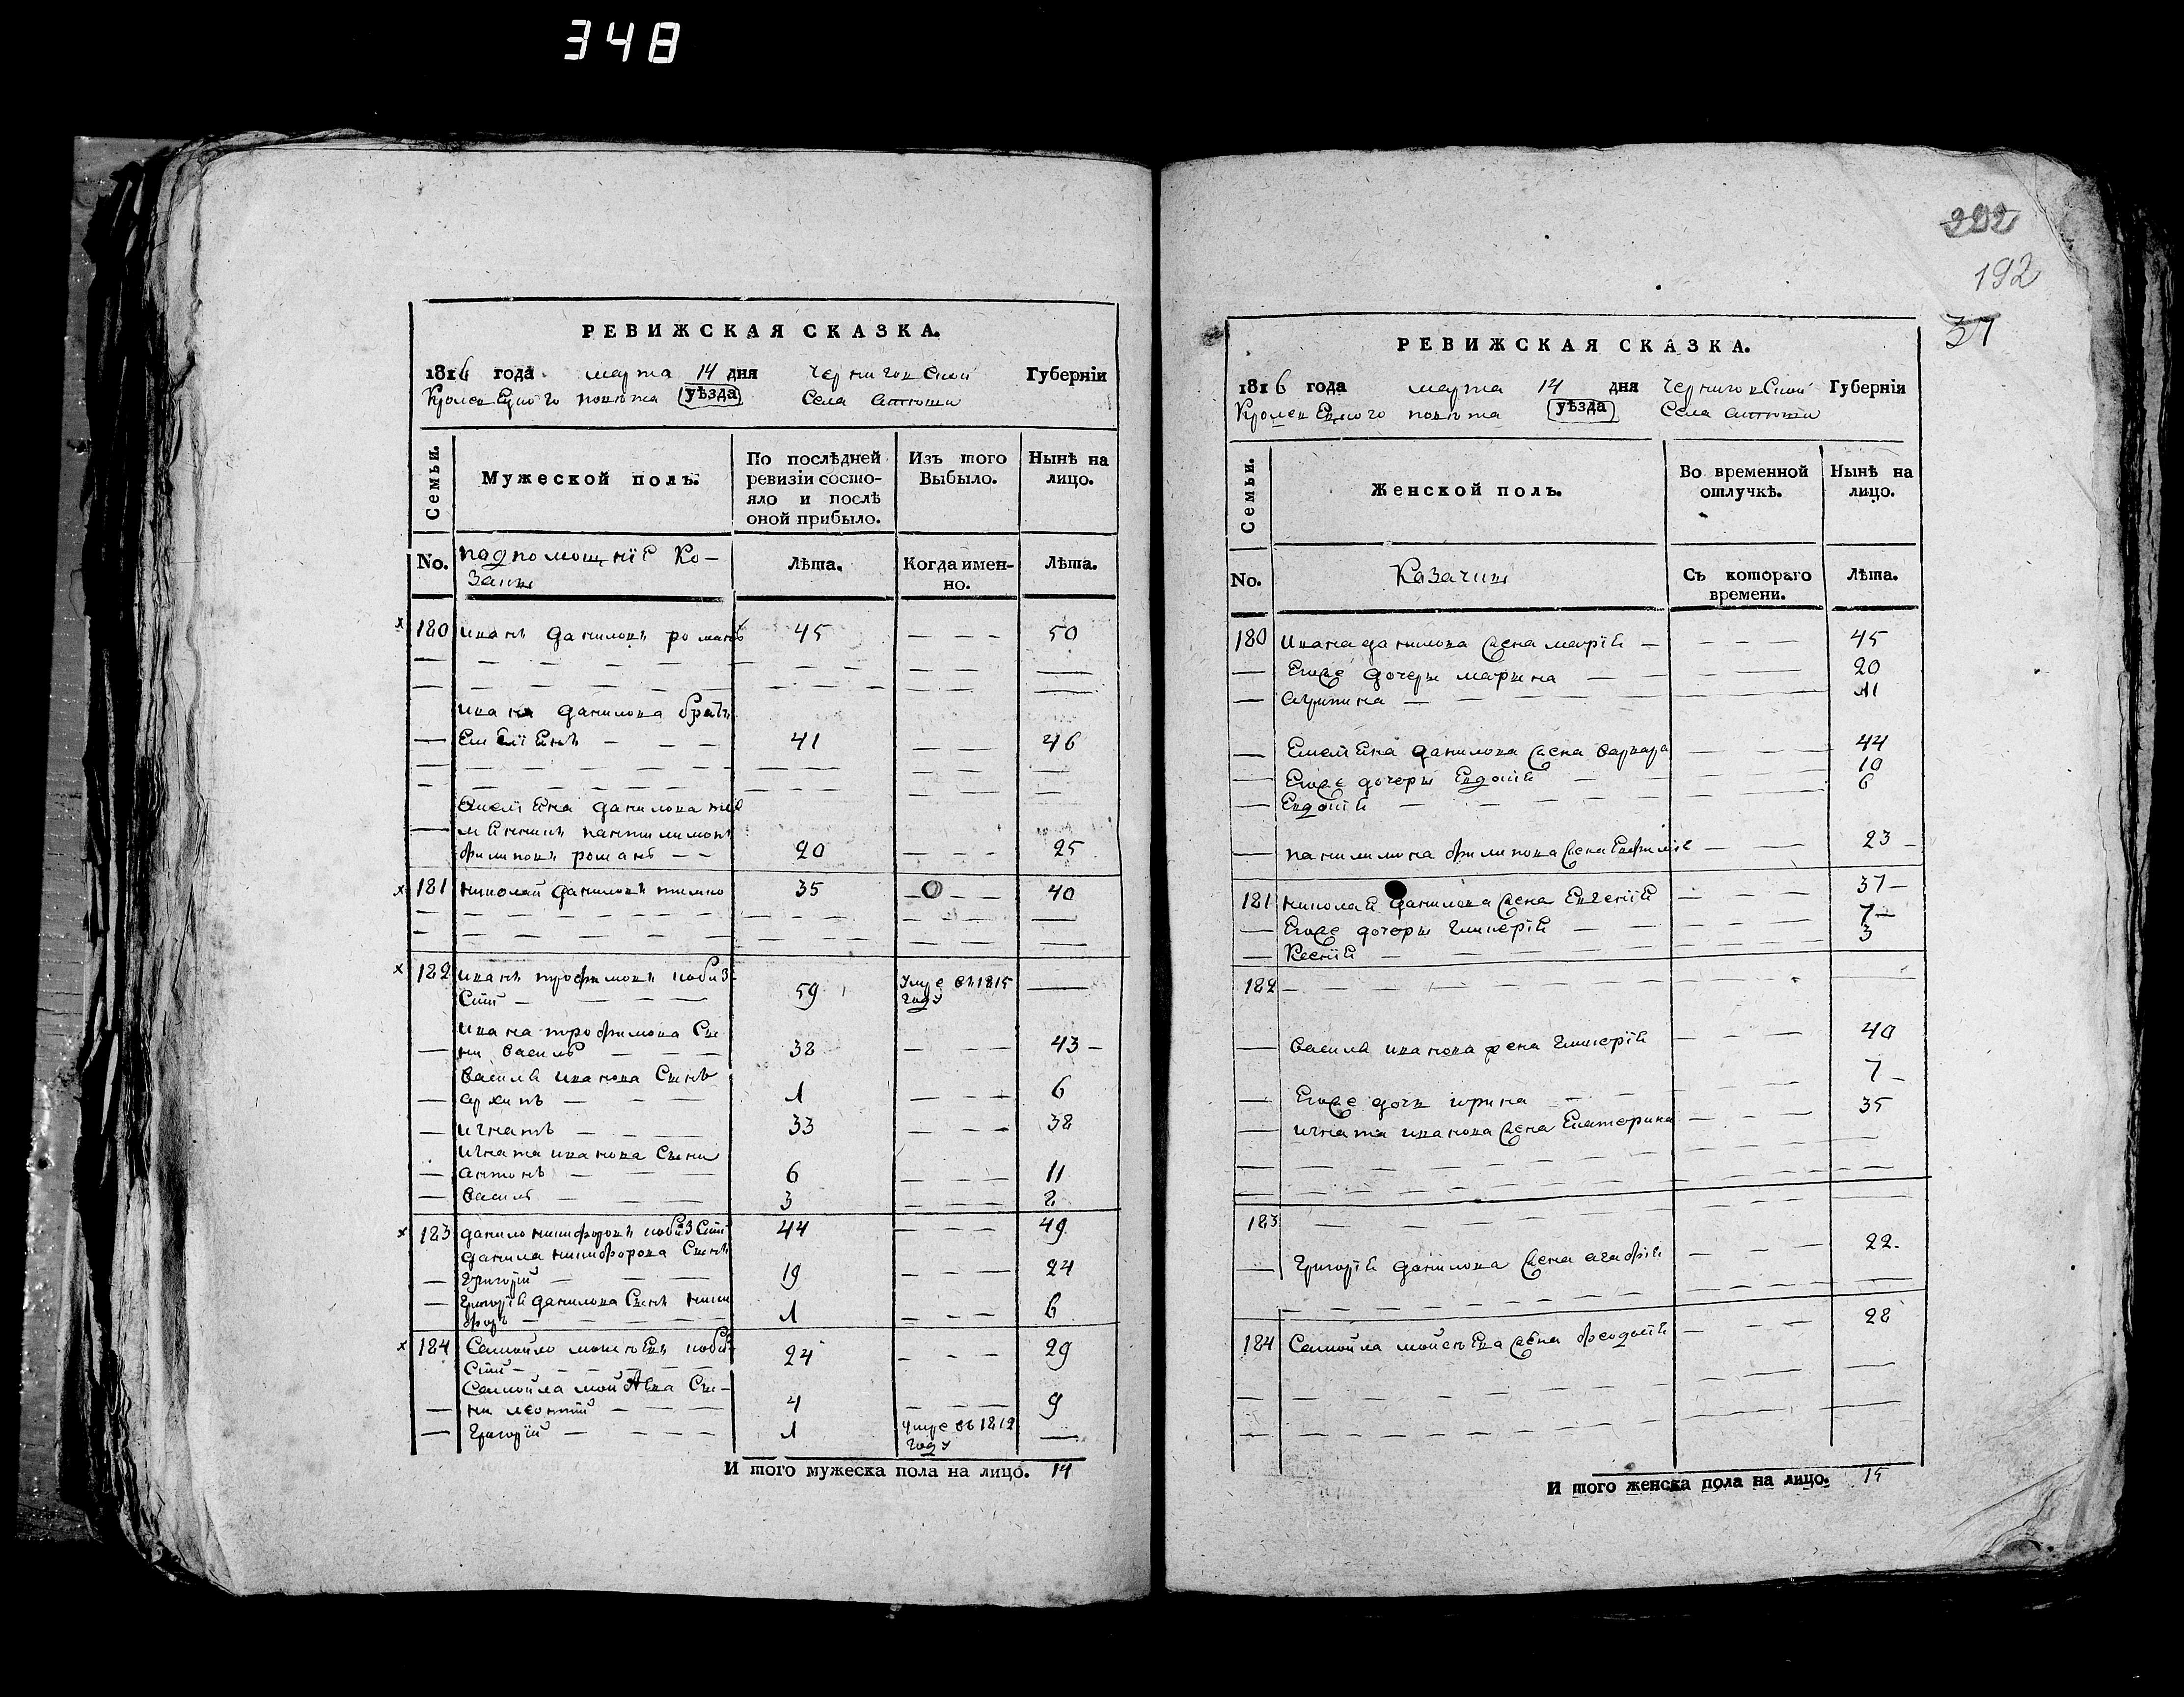 348
РЕВИЖСКАЯ СКАЗКА.
1816 года марта 14 дня Черниговской Губерніи
Кролевецкого повѣта уѣзда Села
Семьи.
Мужеской полъ.
По послѣдней ревизіи состо-
яло и послѣ
оной прибыло.
Изъ того
Выбыло.
Нынѣ на
лицо.
No.
подпомощніе Ко-
заки
Лѣта.
Когда имен-
но.
Лѣта.
180 иванъ даниловъ романъ 45 — — — 50
ивана данилова братъ
Емелїенъ — — — 41 — — 46
Емелїена данилова
пантилимонъ
филиповъ романъ — — 20 — — — 25
181 николай даниловъ 35 — — 40
182 иванъ трофимовъ кобиз-
Скій — 59 умре въ 1815
году —
ивана трофимова Сы-
ни василь — — — 38 — — — 43 —
василя иванова Сынъ
архипъ — — — 1 — — — 6
игнатъ — — — 33 — — — 38
игната иванова Сыни
антонъ — — 6 — — — 11
василь — — 3 — — — 8
183 данило никифоровъ кобизскій 44 — — — 49
данила никифорова Сынъ
григорій — — — 19 — — — 24
григорія данилова Сынъ ники
форъ — — — 1 — — — 6
184 Самойло мойсѣевъ кобиз-
Скій — — 24 — — — 29
Самойла мойсѣева Сы-
ни леонтій — — — 4 — — — 9
григорій — — — 1 умре въ 1812
году —
И того мужеска пола на лицо. 14
222
192
37
РЕВИЖСКАЯ СКАЗКА.
1816 года марта 14 дня Черниговской Губерніи
Кролевецкого повѣта уѣзда Села
Семьи.
Женской полъ.
Во временной
отлучкѣ.
Нынѣ на
лицо.
No.
Козачки
Съ котораго
времени.
Лѣта.
180 ивана данилова жена марїя — — — 45
— Егоже дочери марина — — 20
— агрипина — 11
— Емелїена данилова жена варвара — — 44
— Егоже дочери Евдокїя — — 10
— Евдокїя — 6
— панилимона филипова жена — — 23 —
181 николая данилова жена Евгенїя — — 37 —
— Егоже дочери гликерїя — — 7 —
— Ксенїя — 3
182 — — —
— василя иванова жена гликерїя — — 40
— Егоже дочь ирина — — 7 —
— игната иванова жена Екатерина — — 35
183 — — —
— григорїя данилова жена агафїя — — 22.
184 Самойла мойсѣева жена феодосїя — — 28
И того женска пола на лицо. 15